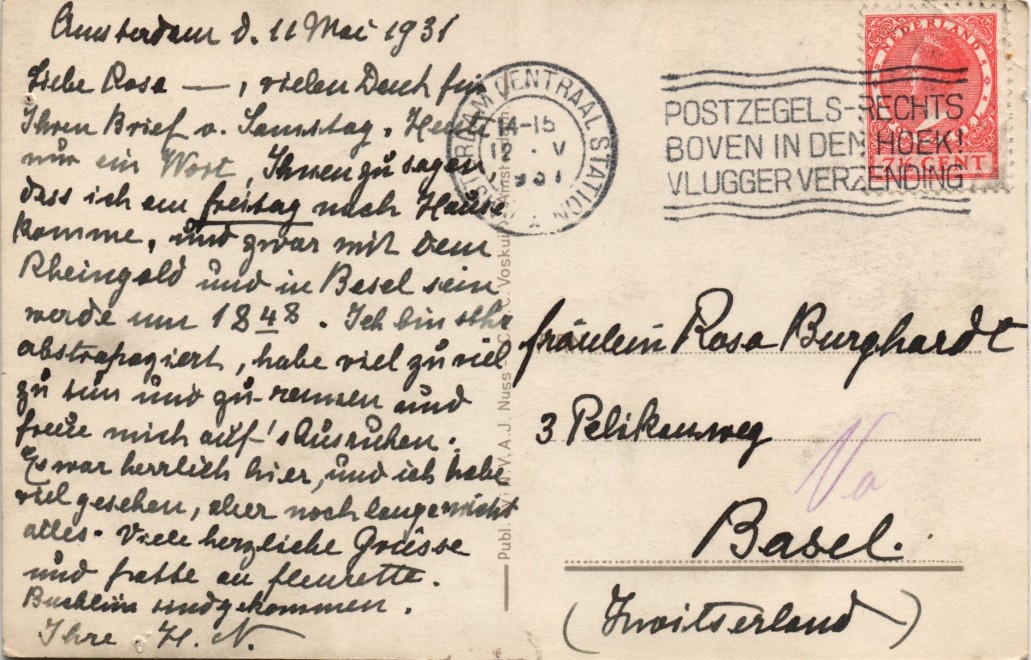 Amsterdam d. 11 Mai 1931
Liebe Rosa —, vielen Dank für
Ihren Brief v. Samstag. Heute
nur ein Wort Ihnen zu sagen
dass ich am freitag nach Hause
komme, und zwar mit dem
Rheingold und in Basel sein
werde um 1848. Ich bin sehr
abstrapaziert, habe viel zu viel
zu tun und zu rennen und
freue mich auf's Ausruhen.
Es war herrlich hier, und ich habe
viel gesehen, aber noch lange nicht
alles. Viele herzliche Grüsse
und an fleurette.
sind gekommen.
Ihre H. N.
CENTRAAL STATION
14-15
12 V
1931
POSTZEGELS-RECHTS
BOVEN IN DEN HOEK!
VLUGGER VERZENDING
NEDERLAND
7½ CENT
Publ. N.V. A.J. Nuss - C. Voskuil Amst
fräulein Rosa Burghardt
3 Pelikanweg
Basel.
(Zwitserland)